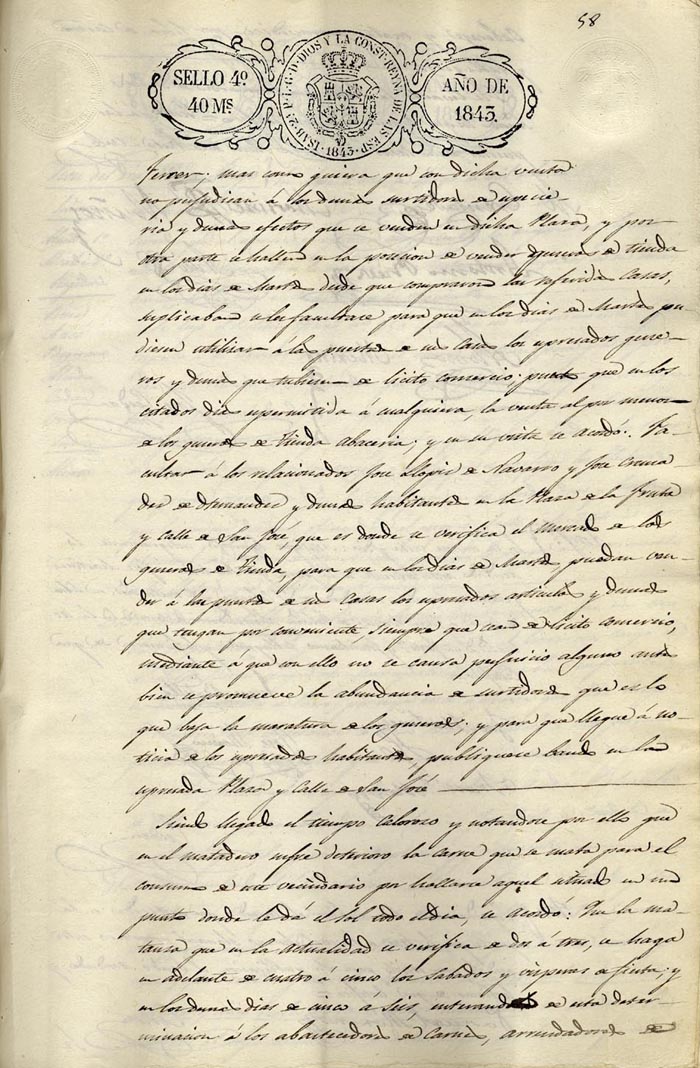 58
SELLO 4º
40 Ms.
ISAB. 2ª P. L. G. D. DIOS Y LA CONST. REYNA DE LAS ESP. 1843.
AÑO DE
1843.
Ferrer; mas como quiera que con dicha venta
no perjudican á los demas surtidores de especie-
ria y demas efectos que se venden en dicha Plaza, y por
otra parte se hallen en la posicion de vender generos de tienda
en los dias de Martes desde que compraron las referidas Casas,
suplicaban se les facultase para que en los dias de Martes pu-
diesen utilizar á la puerta de sus Casas los espresados gene-
ros y demas que tubiesen de licito comercio; puesto que en los
citados dias es permitida á cualquiera, la venta al por menor
de los generos de tienda abaceria; y en su vista se acordó: Fa-
cultar á los relacionados José Llopis de Navarro y José
der de Hernandez y demas habitantes en la Plaza de la Fruta
y Calle de San José, que es donde se verifica el Mercado de los
generos de Tienda, para que en los dias de Martes puedan ven-
der á las puertas de sus Casas los espresados articulos y demas
que tengan por conveniente, siempre que sean de licito comercio,
mediante á que con ello no se causa perjuicio alguno antes
bien se promueve la abundancia de surtidores que es lo
que baja la baratura de los generos; y para que llegue á no-
ticia de los espresados habitantes, publiquese bando en la
espresada Plaza y Calle de San José
Siendo llegado el tiempo Caloroso y notandose por ello que
en el matadero sufre deterioro la Carne que se mata para el
consumo de este vecindario por hallarse aquel situado en un
punto donde le dá el sol todo el dia, se acordó: Que la ma-
tanza que en la actualidad se verifica de dos á tres, se haga
en adelante de cuatro á cinco los Sabados y visperas de fiesta; y
en los demas dias de cinco á seis, enterandose de esta deter-
minacion á los abastecedores de Carnes, arrendadores de